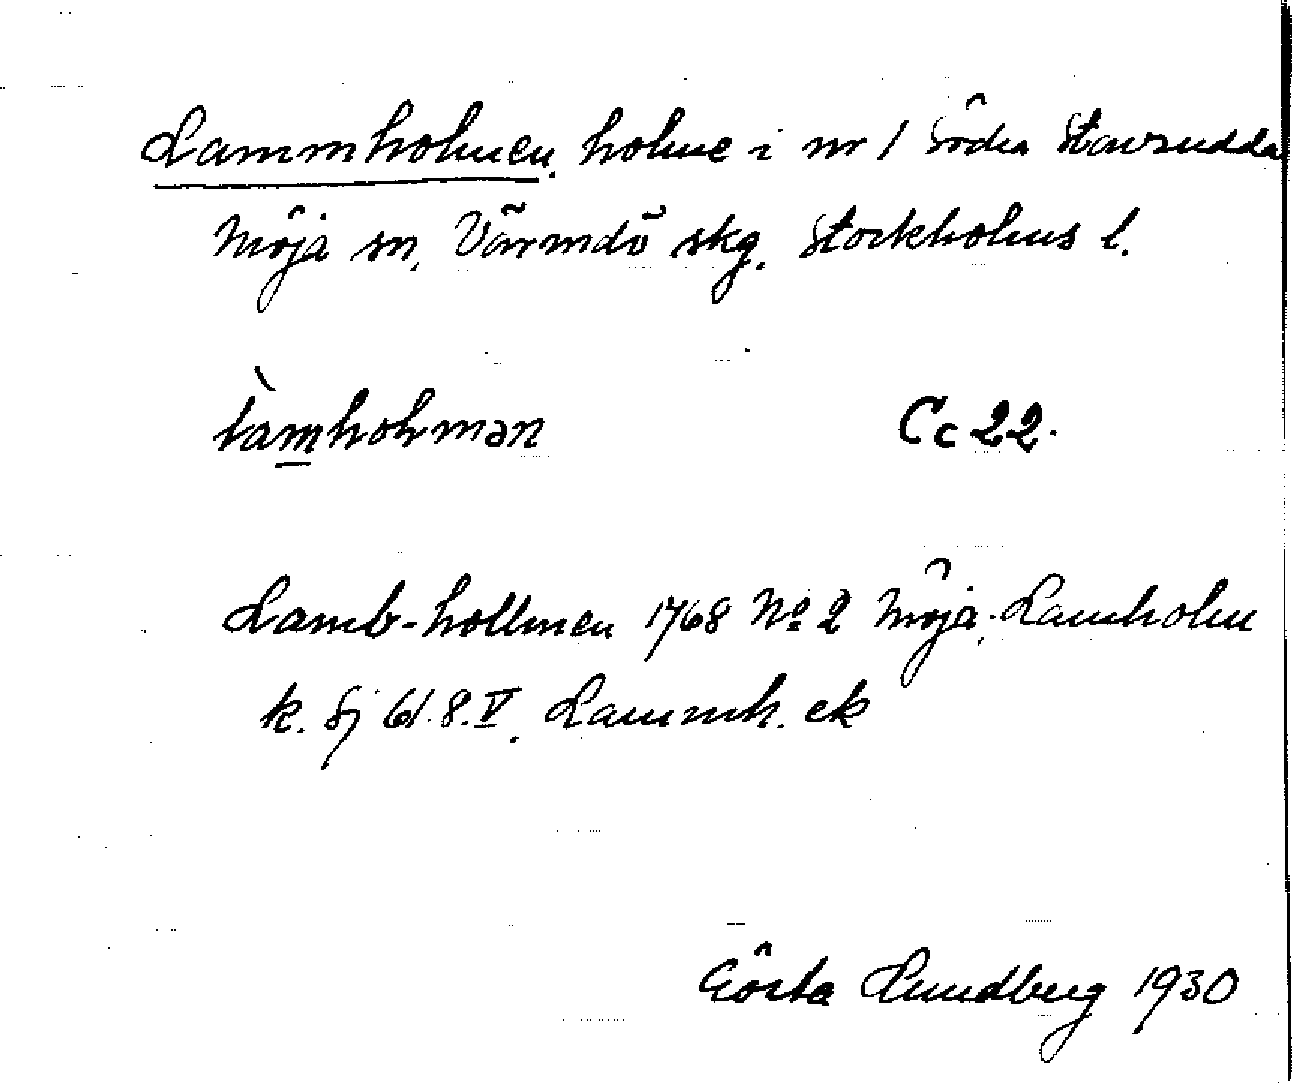 Lammholmen, holme i nr 1 Södra Stavsudda
Möja sn, Värmdö skg. Stockholms l.
`lamholmən Cc 22.
Lamb-hollmen 1768 No 2 Möja. Lamholm
k. Sj 61.8.V. Lammh. ek
Gösta Lundberg 1930